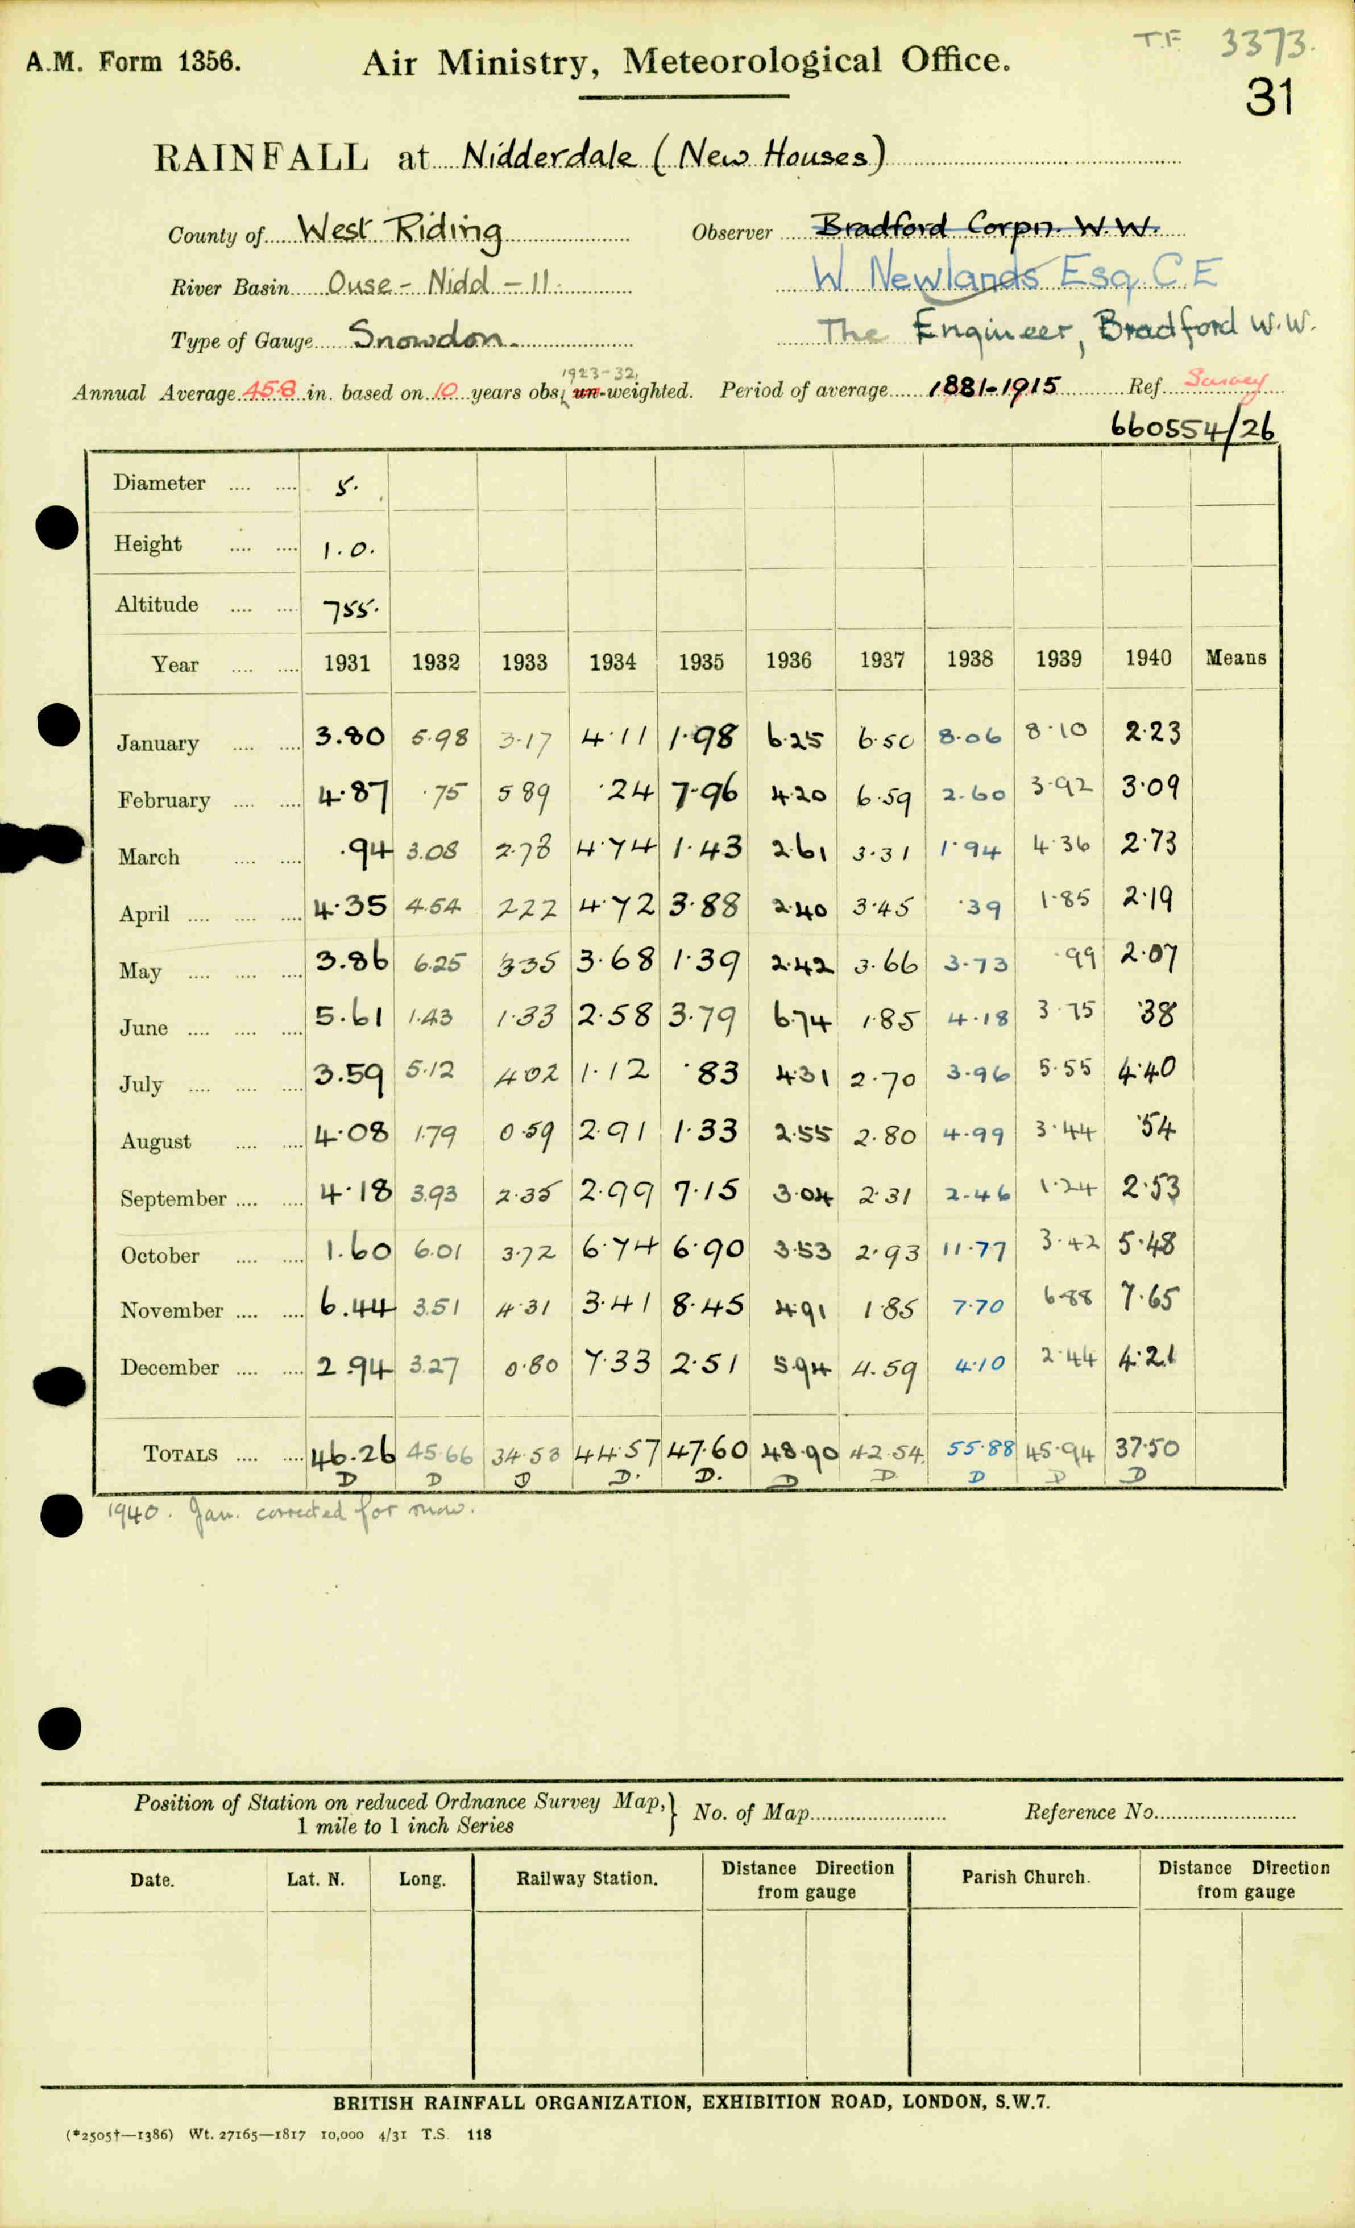 T.F. 3373.
A.M. Form 1356. Air Ministry, Meteorological Office.
31
RAINFALL at Nidderdale (New Houses)
County of West Riding Observer Bradford Corpn. W.W.
River Basin Ouse - Nidd - 11. W. Newlands Esq. C.E
Type of Gauge Snowdon. The Engineer, Bradford W.W.
1923-32,
Annual Average 45.8 in. based on 10 years obs, un-weighted. Period of average 1881-1915 Ref. Survey
660554/26
Diameter .... .... 5.
Height .... .... 1.0.
Altitude .... .... 755.
Year .... .... 1931 1932 1933 1934 1935 1936 1937 1938 1939 1940 Means
January .... .... 3.80 5.98 3.17 4.11 1.98 6.25 6.50 8.06 8.10 2.23
February .... .... 4.87 .75 5 89 .24 7.96 4.20 6.59 2.60 3.92 3.09
March .... .... .94 3.08 2.78 4.74 1.43 2.61 3.31 1.94 4.36 2.73
April .... .... .... 4.35 4.54 2.22 4.72 3.88 2.40 3.45 .39 1.85 2.19
May .... .... .... 3.86 6.25 3.35 3.68 1.39 2.42 3.66 3.73 .99 2.07
June .... .... .... 5.61 1.43 1.33 2.58 3.79 6.74 1.85 4.18 3.75 .38
July .... .... .... 3.59 5.12 4.02 1.12 .83 4.31 2.70 3.96 5.55 4.40
August .... .... 4.08 1.79 0.59 2.91 1.33 2.55 2.80 4.99 3.44 .54
September .... .... 4.18 3.93 2.35 2.99 7.15 3.04 2.31 2.46 1.24 2.53
October .... .... 1.60 6.01 3.72 6.74 6.90 3.53 2.93 11.77 3.42 5.48
November .... .... 6.44 3.51 4.31 3.41 8.45 4.91 1.85 7.70 6.88 7.65
December .... .... 2.94 3.27 0.80 7.33 2.51 5.94 4.59 4.10 2.44 4.21
TOTALS .... .... 46.26 45.66 34.53 44.57 47.60 48.90 42.54 55.88 45.94 37.50
D D D D. D. D D D D D
1940. Jan. corrected for snow.
Position of Station on reduced Ordnance Survey Map,} No. of Map Reference No.
1 mile to 1 inch Series
Date. Lat. N. Long. Railway Station. Distance Direction from gauge Parish Church. Distance Direction from gauge
BRITISH RAINFALL ORGANIZATION, EXHIBITION ROAD, LONDON, S.W.7.
(*2505†—1386) Wt. 27165—1817 10,000 4/31 T.S. 118